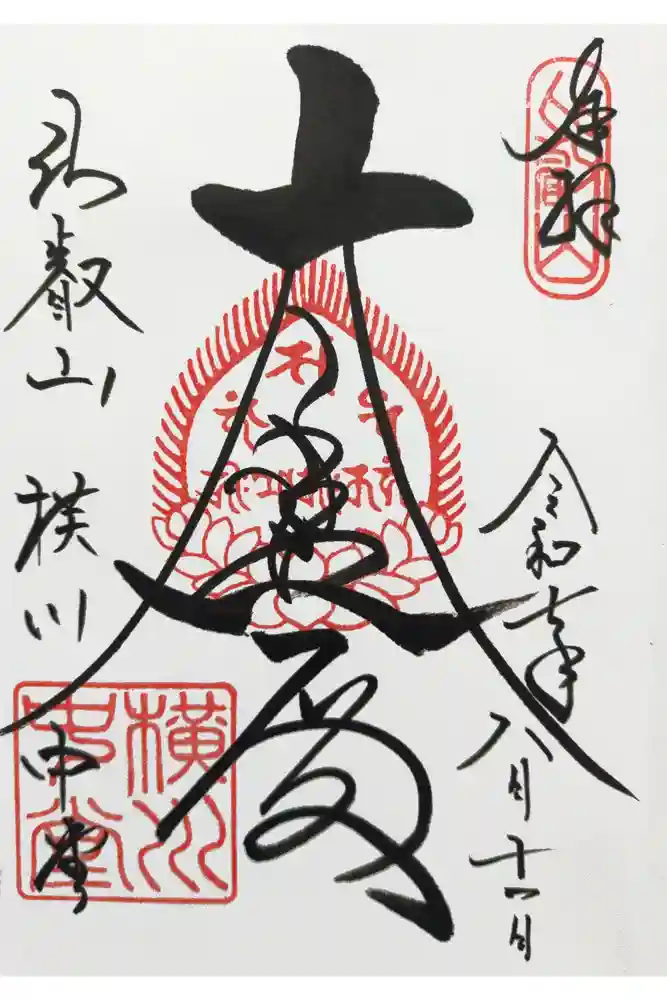 奉拝
令和七年八月十一日
大悲殿
比叡山 横川 中堂
横川
中堂